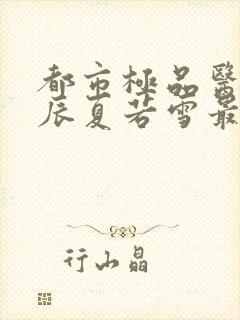 都市極品醫
辰夏若雪最
行山晶